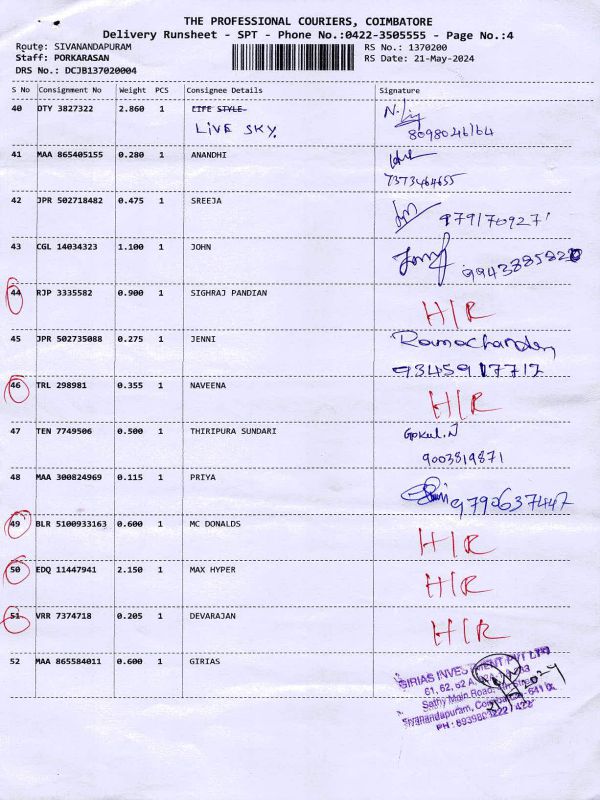 THE PROFESSIONAL COURIERS, COIMBATORE
Delivery Runsheet - SPT - Phone No.:0422-3505555 - Page No.:4
Route: SIVANANDAPURAM RS No.: 1370200
Staff: PORKARASAN RS Date: 21-May-2024
DRS No.: DCJB137020004
S No Consignment No Weight PCS Consignee Details Signature
40 DTY 3827322 2.860 1 LIFE STYLE
LIVE SKY. 8098046164
41 MAA 865405155 0.280 1 ANANDHI
7373464655
42 JPR 502718482 0.475 1 SREEJA
9791709271
43 CGL 14034323 1.100 1 JOHN
44 RJP 3335582 0.900 1 SIGHRAJ PANDIAN H/R
45 JPR 502735088 0.275 1 JENNI
9345917712
46 TRL 298981 0.355 1 NAVEENA H/R
47 TEN 7749506 0.500 1 THIRIPURA SUNDARI Gokul.N
9003819871
48 MAA 300824969 0.115 1 PRIYA 9790637447
49 BLR 5100933163 0.600 1 MC DONALDS H/R
50 EDQ 11447941 2.150 1 MAX HYPER H/R
51 VRR 7374718 0.205 1 DEVARAJAN H/R
52 MAA 865584011 0.600 1 GIRIAS
GIRIAS INVESTMENT PVT LTD
61, 62, 62 A
Sathy Main Road,
Sivanandapuram, Coimbatore-641